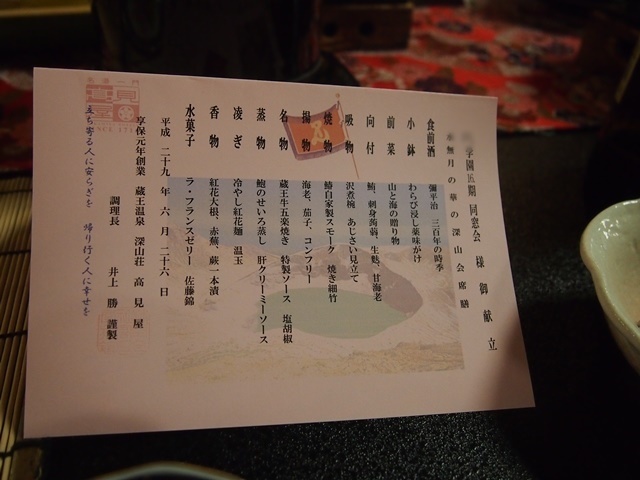 学園匠期 同窓会 様 御献立
水無月の華の深山会席膳
食前酒 彌平治 三百年の時季
小鉢 わらび浸し薬味がけ
前菜 山と海の贈り物
向付 鮪、刺身蒟蒻、生麩、甘海老
吸物 沢煮椀 あじさい見立て
焼物 鰆自家製スモーク 焼き細竹
揚物 海老、茄子、コンフリー
名物 蔵王牛五楽焼き 特製ソース 塩胡椒
蒸物 鮑のせいろ蒸し 肝クリーミーソース
凌ぎ 冷やし紅花麺 温玉
香物 紅花大根、赤蕪、蕨一本漬
水菓子 ラ・フランスゼリー 佐藤錦
平成二十九年六月二十六日
享保元年創業 蔵王温泉 深山荘 高見屋
調理長 井上 勝 謹製
立ち寄る人に安らぎを 帰り行く人に幸せを
高見屋
SINCE 1716